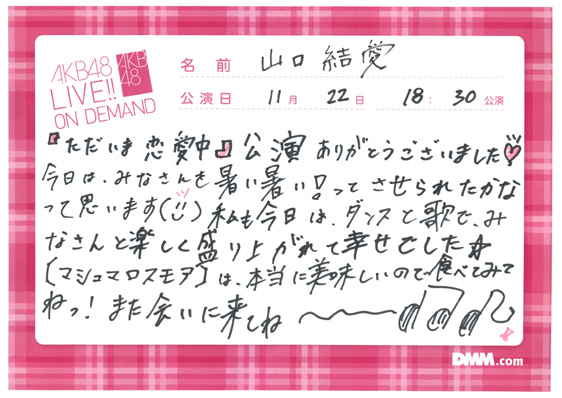 AKB48
LIVE!!
ON DEMAND
AKB
48
名前 山口 結愛
公演日 11月 22日 18:30公演
『ただいま 恋愛中』公演 ありがとうございました♡
今日は、みなさんを暑い暑い!ってさせられたかな
って思います(¨) 私も今日は、ダンスと歌で、み
なさんと楽しく盛り上がれて幸せでした☆
[マシュマロスモア]は、本当に美味しいので食べてみて
ねっ! また会いに来てね
DMM.com